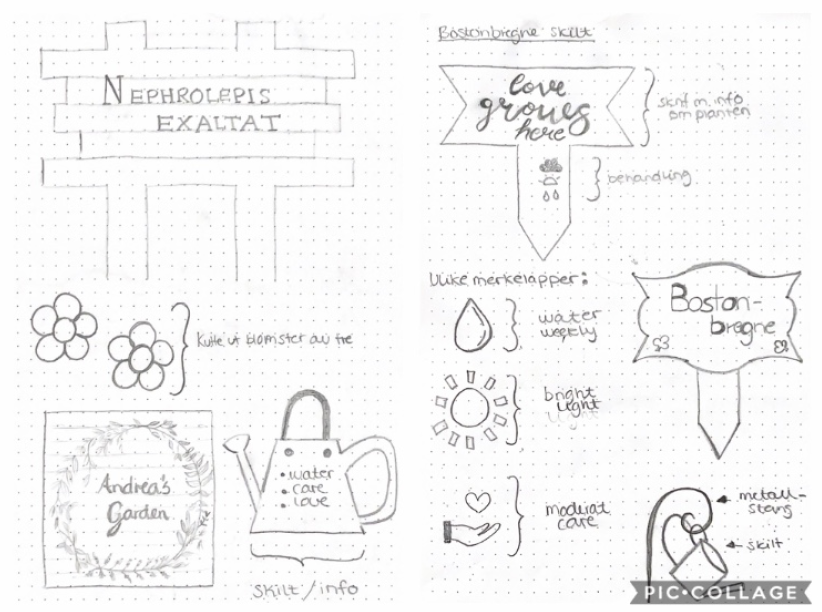 NEPHROLEPIS
EXALTAT
Kutte ut blomster av tre
Andrea's
Garden
• water
• care
• love
skilt / info
Bostonbregne skilt
love
grows
here
skrift m. info
om planten
behandling
Ulike merkelapper:
water
weekly
bright
light
modriat
care
Boston-
bregne
metall-
stang
skilt
PIC•COLLAGE